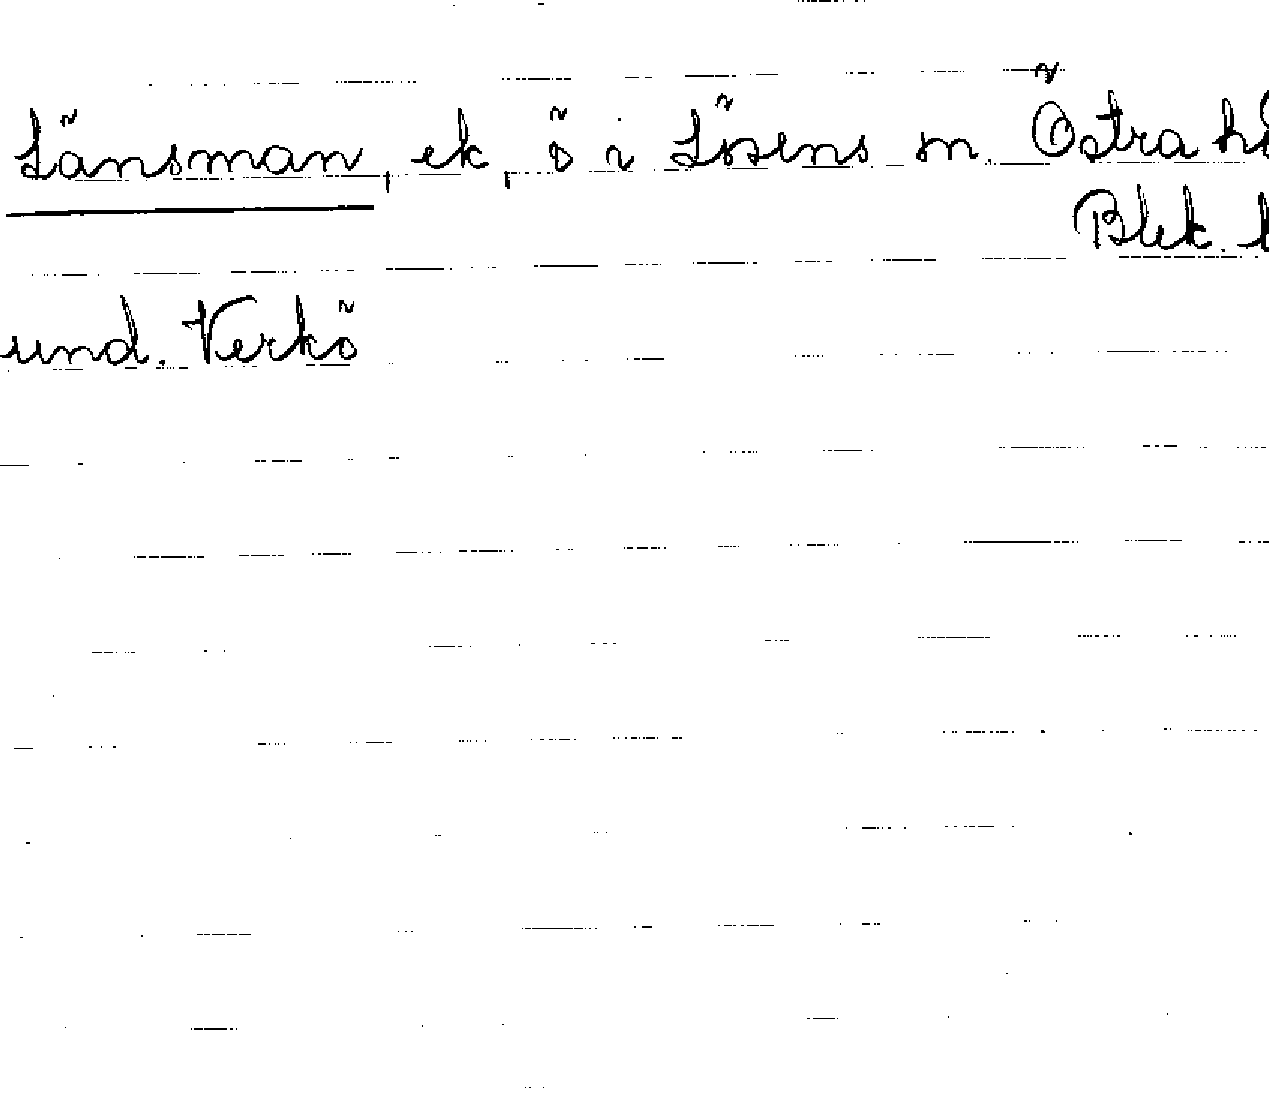 Länsman, ek, ö i Lösens sn. Östra
Blek.
und. Verkö